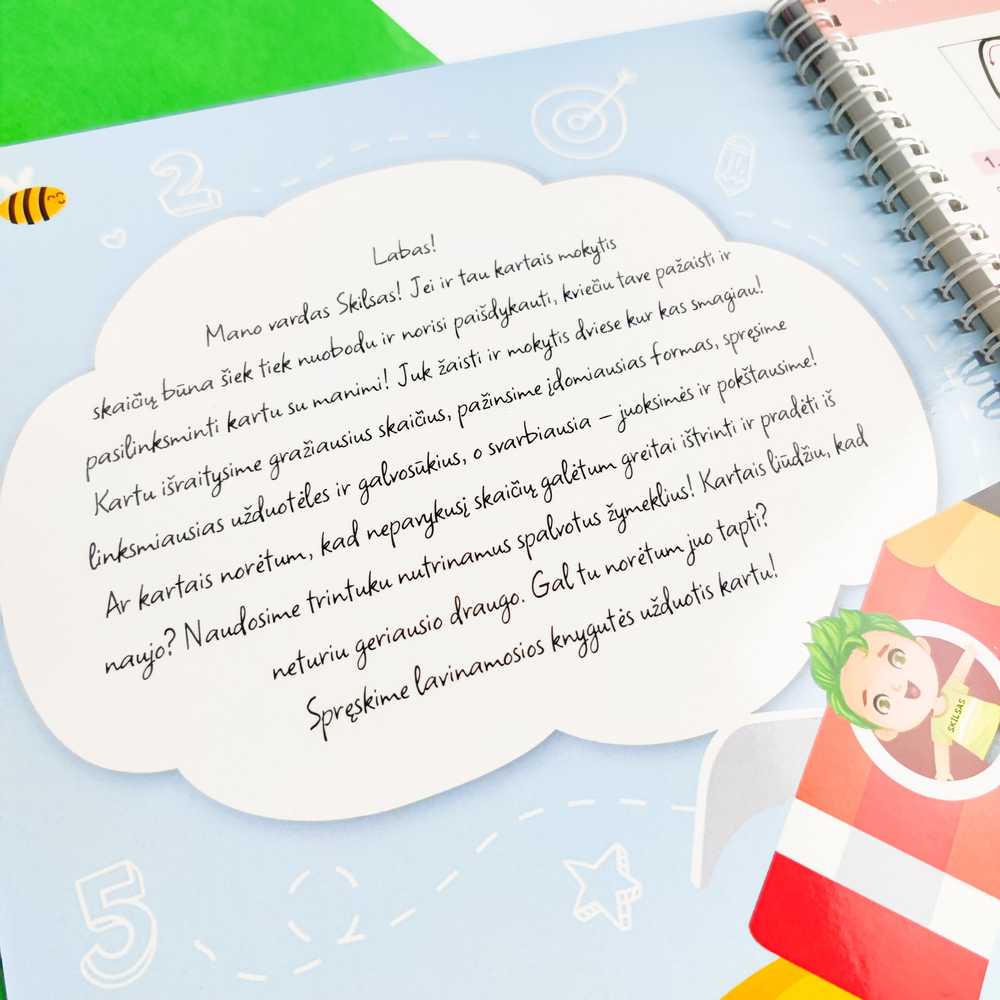 Labas!
Mano vardas Skilsas! Jei ir tau kartais mokytis
skaičių būna šiek tiek nuobodu ir norisi paišdykauti, kviečiu tave pažaisti ir
pasilinksminti kartu su manimi! Juk žaisti ir mokytis dviese kur kas smagiau!
Kartu išraitysime gražiausius skaičius, pažinsime įdomiausias formas, spręsime
linksmiausias užduotėles ir galvosūkius, o svarbiausia – juoksimės ir pokštausime!
Ar kartais norėtum, kad nepavykusį skaičių galėtum greitai ištrinti ir pradėti iš
naujo? Naudosime trintuku nutrinamus spalvotus žymeklius! Kartais liūdžiu, kad
neturiu geriausio draugo. Gal tu norėtum juo tapti?
Spręskime lavinamosios knygutės užduotis kartu!
2
1.
SKILSAS
5